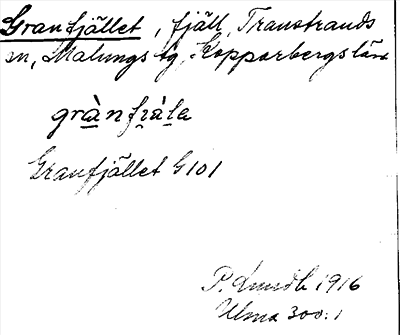 Granfjället, fjäll, Transtrands
sn, Malungs tg, Kopparbergs län
grànfi̯àla
Granfjället G101
P. Lundh 1916
Ulma 300:1